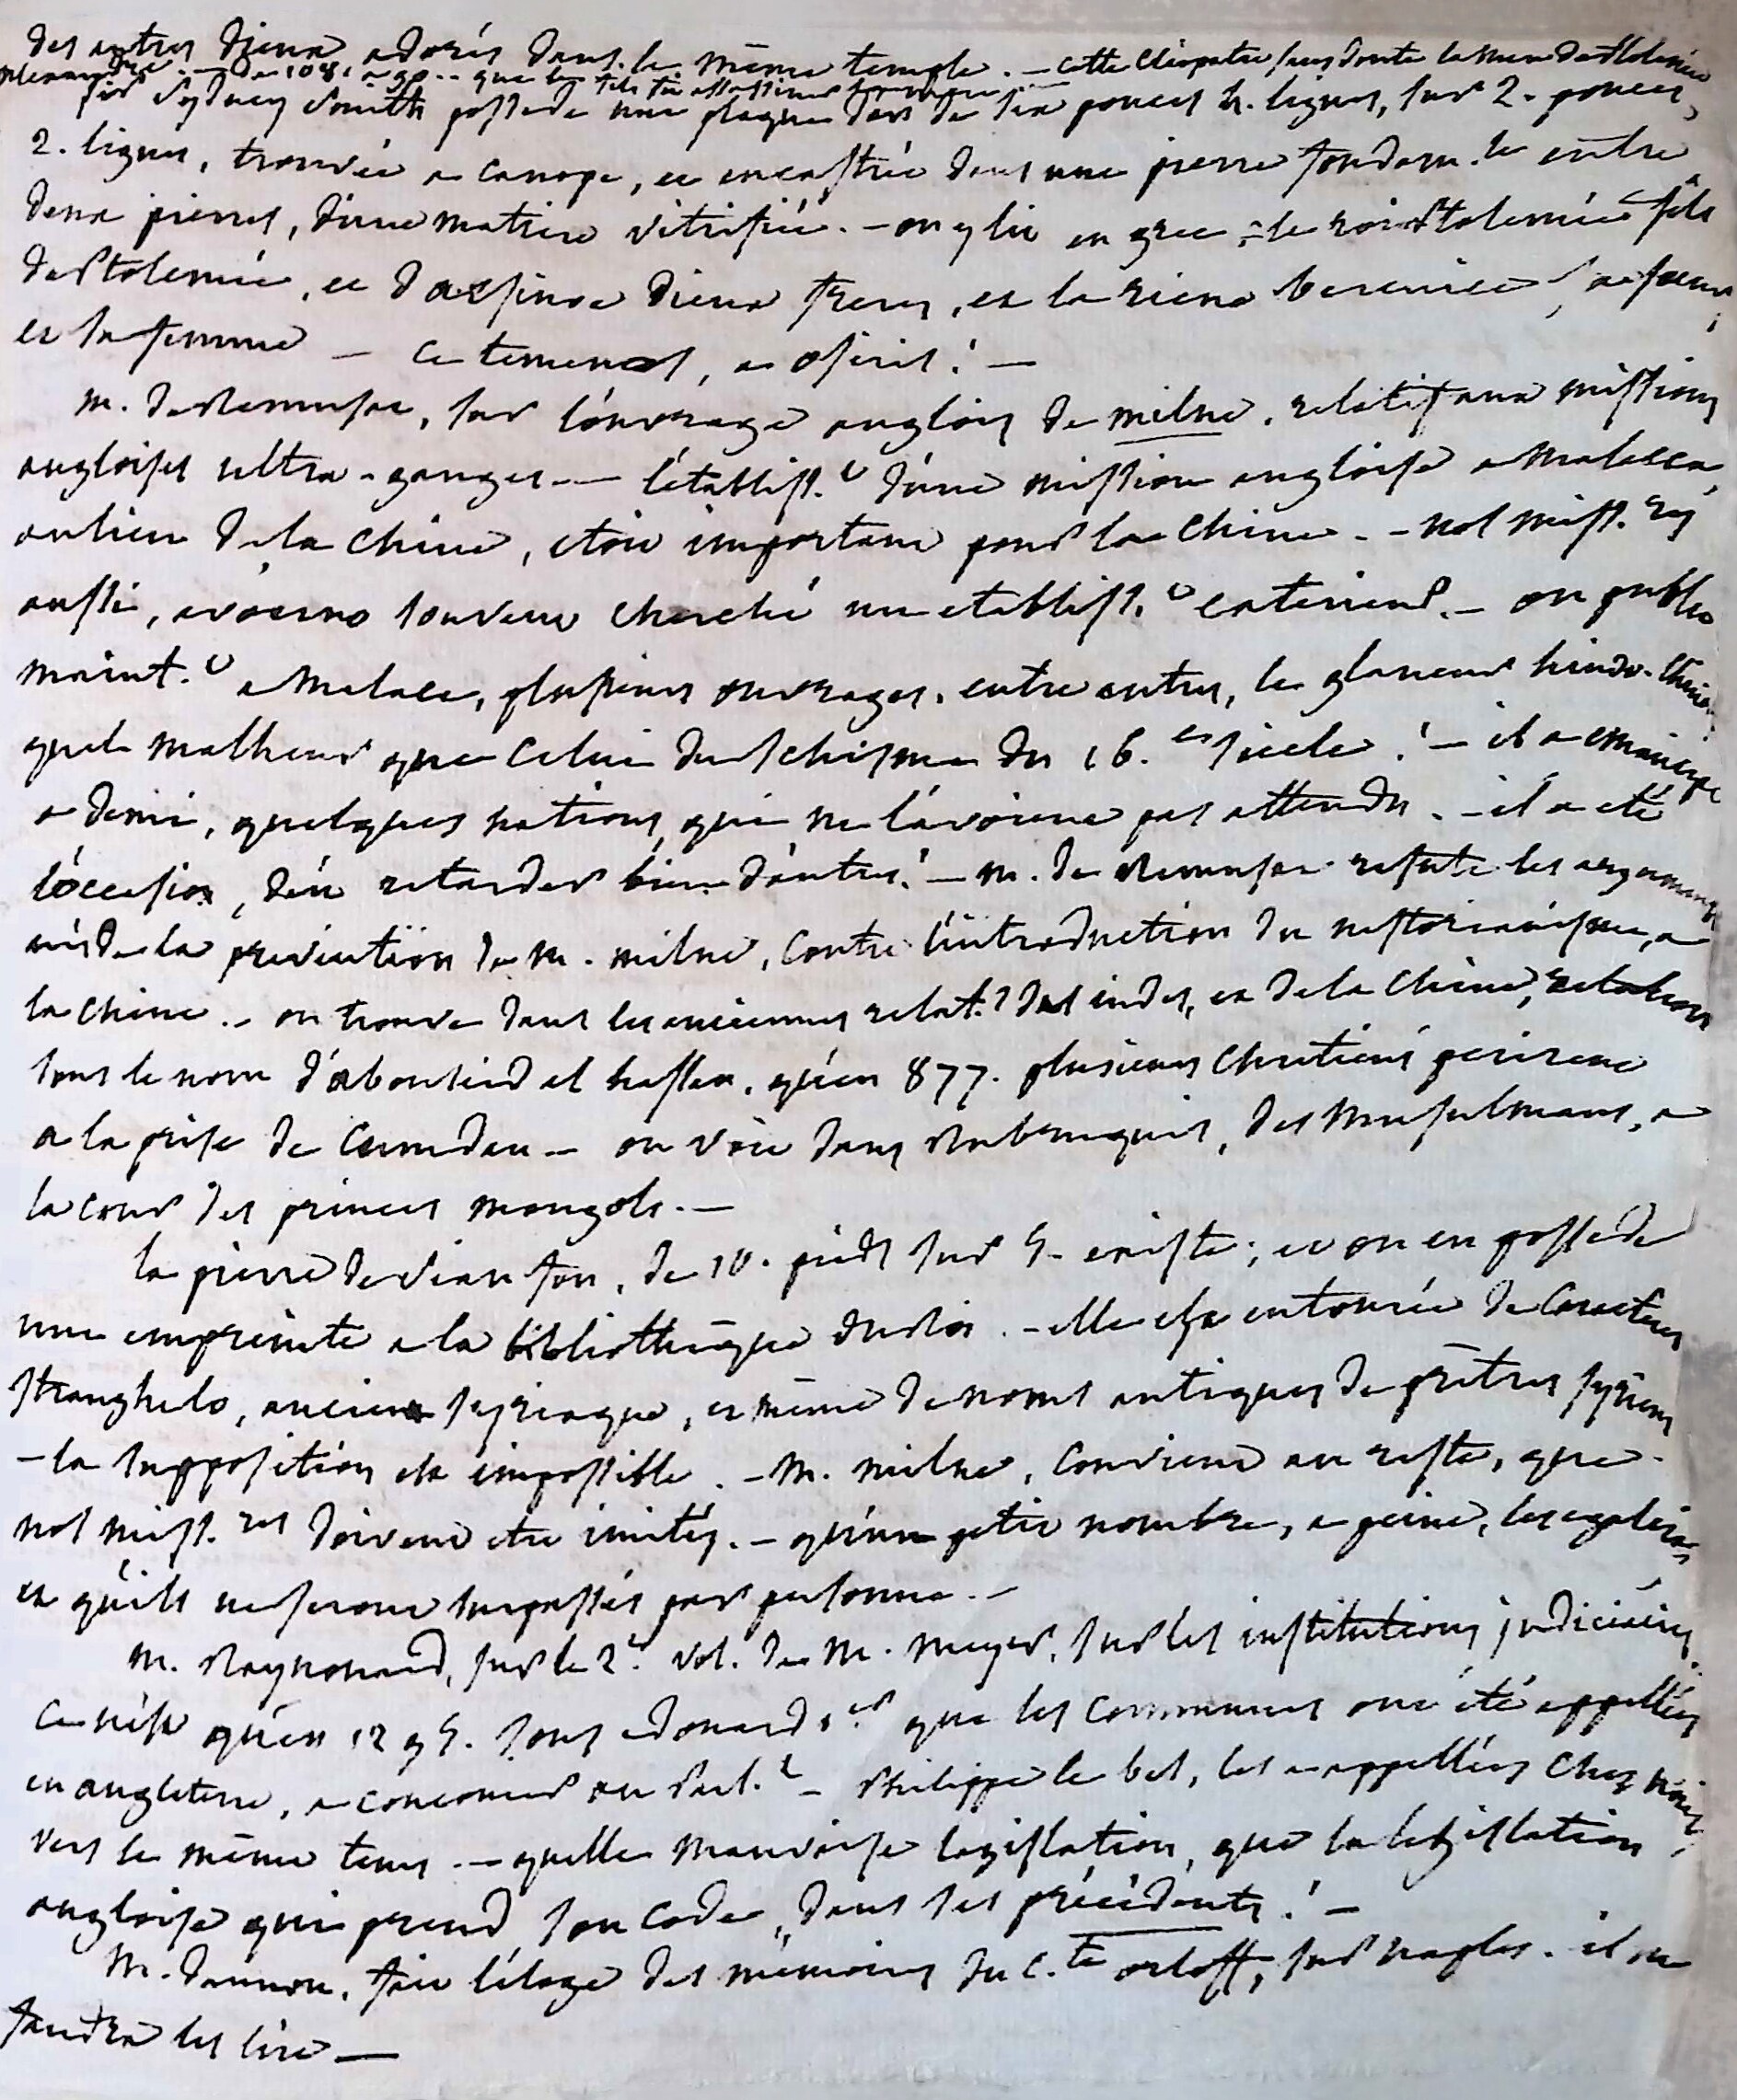 des autres dieux adorés dans le même temple. — cette Cléopatre, sans doute la mere de Ptolemée
alexandre. — de 108. a 90. — que ce fils fit assassiner
sir Sydney Smith possede une plaque d'or de six pouces h. lignes, sur 2. pouces
2. lignes, trouvée a canope, et encastrée dans une pierre fondam.le entre
deux pierres, d'une matiere vitrifiée. — on y lit en grec = le roi Ptolemée fils
de Ptolemée, et d'arsinoe dieux freres, et la reine berenice, sa soeur,
et sa femme — ce temenos, a osiris! —
m. de Remusat, sur l'ouvrage anglois de milne, relatif aux missions
angloises ultra-ganges. — l'établiss.t d'une mission angloise a Malacca,
au lieu de la Chine, étoit important pour la Chine. — nos miss.res
aussi, avoient souvent cherché un etabliss.t exterieur. — on publie
maint.t a Malaca, plusieurs ouvrages, entre autres, le glaneur hindo-chinois.
quel malheur que celui du schisme du 16.e siecle! — il a emancipé
a demi, quelques nations, qui ne l'avoient pas attendu. — il a été
l'occasion, d'en retarder bien d'autres! — m. de Remusat refute les argumens
nés de la prevention de m. milne, contre l'introduction du nestorianisme, a
la chine. — on trouve dans les anciennes relat.s des indes, et de la Chine, relation
sous le nom d'abouseid el hassen, qu'en 877. plusieurs Chretiens perirent
a la prise de Cumdan — on voit dans Rubruquis, des Musulmans, a
la cour des princes mongols. —
la pierre de sian fou, de 10. pieds sur 5. existe; et on en possede
une empreinte a la bibliothèque du Roi. — elle est entourée de Caracteres
stranghelo, ancien syriaque, et même de noms antiques de prêtres syriens
— la supposition est impossible. — M. milne, convient au reste, que
nos miss.res doivent etre imités. — qu'un petit nombre, a peine, les egalera
et qu'ils ne seront surpassés par personne. —
m. Raynouard, sur le 2.e vol. de M. Meyer, sur les institutions judiciaires.
ce n'est qu'en 1295. sous edouard 1.er que les Communes ont été appellées
en angleterre, a concourir au Parl.t — Philippe le bel, les a appellées chez nous,
vers le même tems. — quelle mauvaise legislation, que la legislation
angloise qui prend son code, dans ses précédents! —
M. daunou, fait l'éloge des mémoires du C.te orloff, sur naples. il me
faudra les lire —